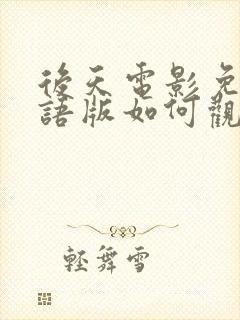 後天電影免
語版如何觀
輕舞雪